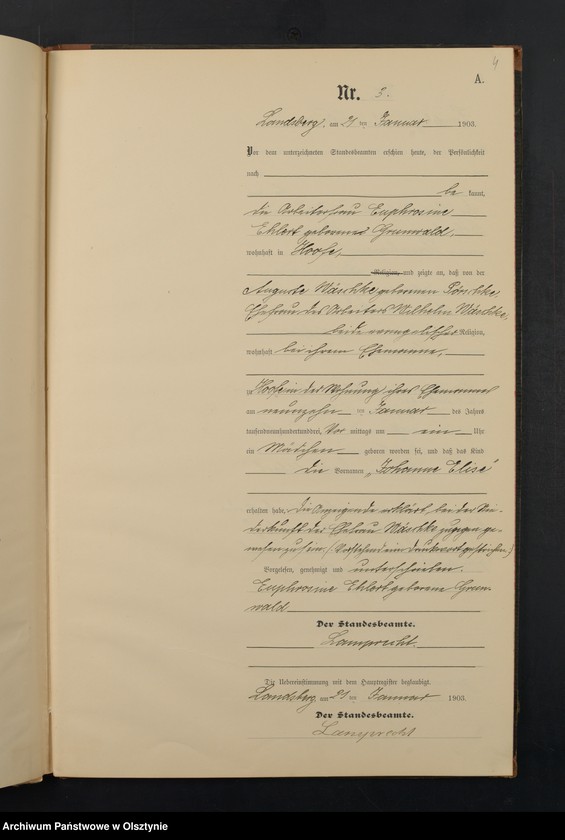 4
A.
Nr. 3.
Landsberg, am 21 ten Januar 1903.
Vor dem unterzeichneten Standesbeamten erschien heute, der Persönlichkeit
nach
be kannt,
die Arbeiterfrau Euphrosine
Ehlert geborene Grunwald,
wohnhaft in Hoofe,
Religion, und zeigte an, daß von der
Auguste Wäschke geborenen Pörschke,
Ehefrau des Arbeiters Wilhelm Wäschke,
beide evangelischer Religion,
wohnhaft bei ihrem Ehemanne,
zu Hoofe in der Wohnung ihres Ehemannes
am neunzehn ten Januar des Jahres
tausendneunhundertunddrei, Vor mittags um ein Uhr
ein Mädchen geboren worden sei, und daß das Kind
die Vornamen „Johanne Elise"
erhalten habe. Die Anzeigende erklärt bei der Nie-
derkunft der Ehefrau Wäschke zugegen ge-
wesen zu sein. (Vorstehend ein Druckwort gestrichen.)
Vorgelesen, genehmigt und unterschrieben.
Euphrosine Ehlert geborene Grun-
wald
Der Standesbeamte.
Lamprecht.
Die Uebereinstimmung mit dem Hauptregister beglaubigt.
Landsberg, am 21 ten Januar 1903.
Der Standesbeamte.
Lamprecht
Archiwum Państwowe w Olsztynie